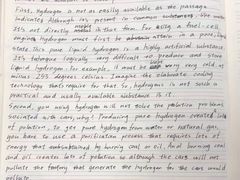 First, Hydrogen is not as easily available as the passage
indicates. Although is's present in common substances, like water
It's not directly useful in that form. For easily a fuel-cell
Hydrogen must first be obtain attain in a pool,
state. This pure liquid hydrogen is a highly artificial substance
It's technique logically very difficult to produce and store
liquid hydrogen. for example, it must be very very cold at
minus 253 degrees celcius. Imagine the elaborate cooling
technology that's require for that. So, hydrogens is not such a
practical and easily available substance is it.
Second, you using hydrogen will not solve the polution problems
sociated with cars, why? Producing pure hydrogen created lots
of polution, to get pure hydrogen from water or natural gas,
you have to use a purification process that requires lots of
energy that embobtained by burning coal or oil. And burning coal
and oil creates lots of polution so although the cars will not
pollute the factory that generate the hydrogen for the cars would
pollute.